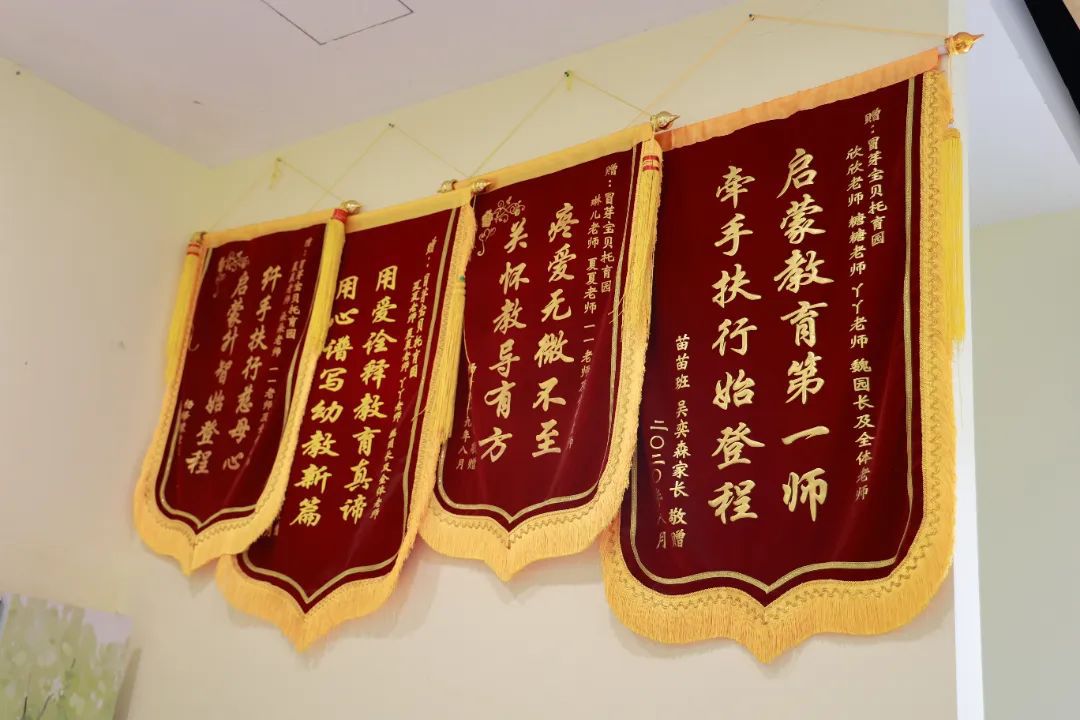 赠:冒芽宝贝托育园
欣欣老师 糖糖老师 丫丫老师 魏园长及全体老师
启蒙教育第一师
牵手扶行始登程
苗苗班 吴奕森家长 敬赠
二〇二〇年八月
赠:冒芽宝贝托育园
琳儿老师 夏夏老师 一一老师
疼爱无微不至
关怀教导有方
九年八月
赠:冒芽宝贝托育园
丫丫老师
用爱诠释教育真谛
用心谱写幼教新篇
赠:冒芽宝贝托育园
一一老师
纤手扶行慈母心
启蒙升智始登程